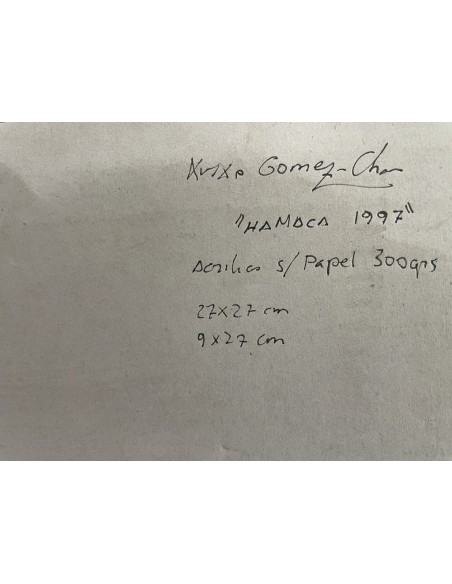 Xvixo Gomez-Cha
"HAMACA 1997"
Acrilico s/ Papel 300grs
27x27 cm
9x27 cm